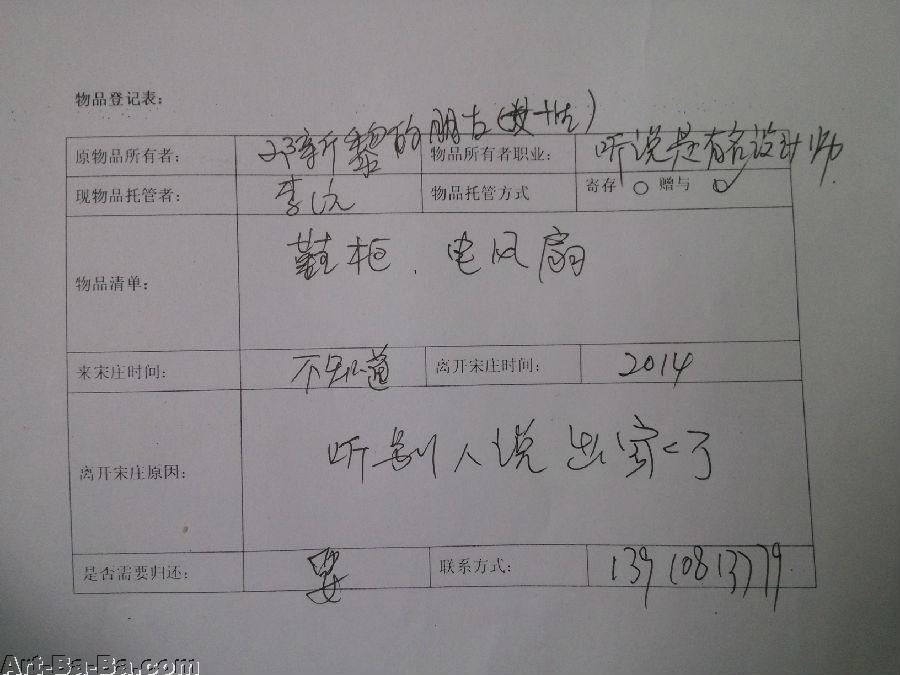 物品登记表：
原物品所有者： 邓新黎的朋友 物品所有者职业： 听说是有名设计师
现物品托管者： 李 物品托管方式 寄存 ○ 赠与 ○
物品清单： 鞋柜、电风扇
来宋庄时间： 不知道 离开宋庄时间： 2014
离开宋庄原因： 听别人说出家了
是否需要归还： 要 联系方式： 13910813779
Art-Ba-Ba.com